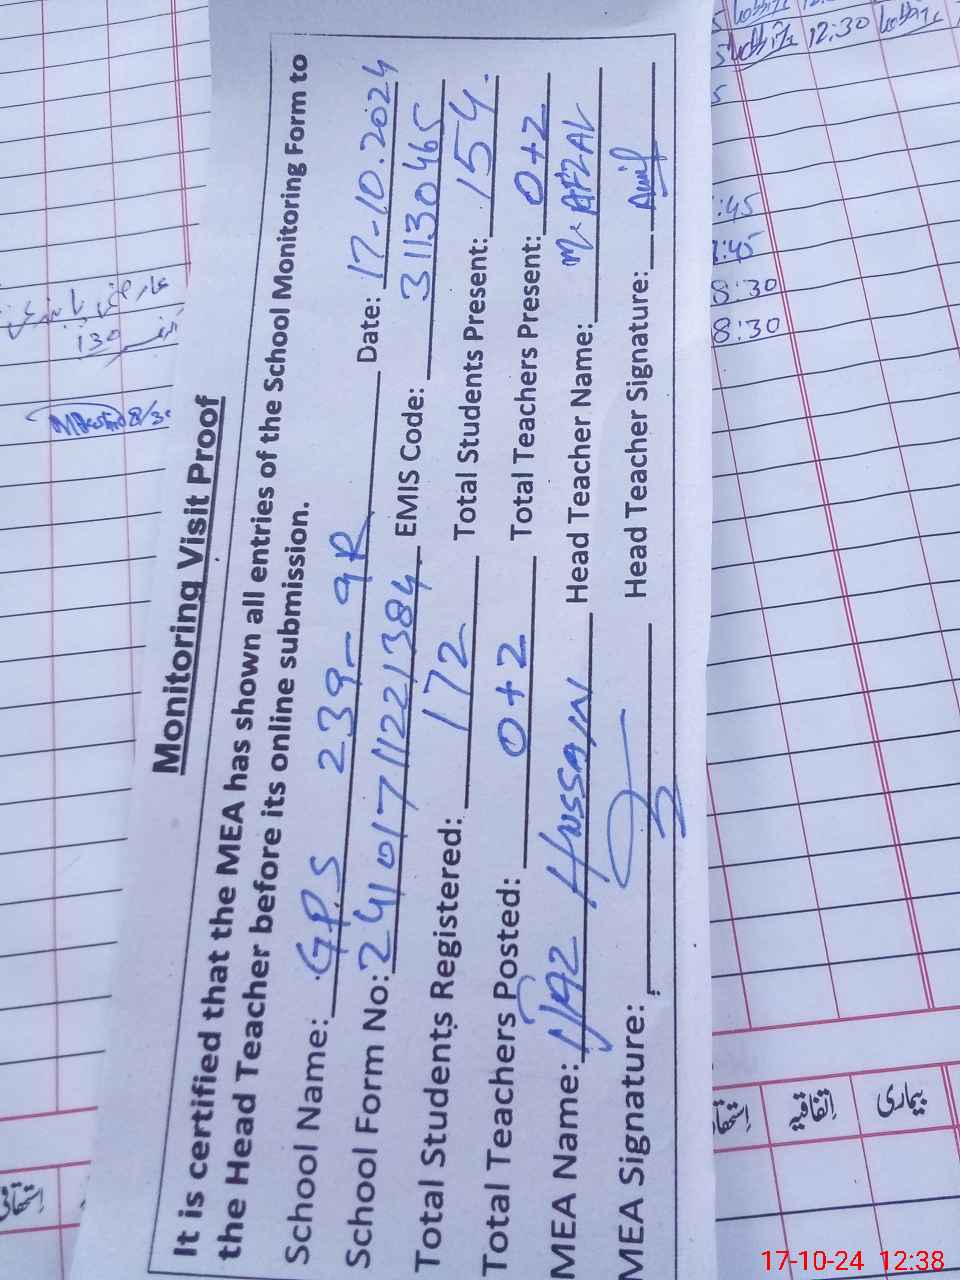 Monitoring Visit Proof
It is certified that the MEA has shown all entries of the School Monitoring Form to
the Head Teacher before its online submission.
School Name: GPS 239-9R Date: 17-10.2024
School Form No: 24101711221384 EMIS Code: 31130465
Total Students Registered: 172 Total Students Present: 154
Total Teachers Posted: 0+2 Total Teachers Present: 0+2
MEA Name: HUSSAIN Head Teacher Name: M. AFZAL
MEA Signature: Head Teacher Signature:
12:30
:45
8:30
8:30
اتفاقیہ
بیماری
17-10-24 12:38